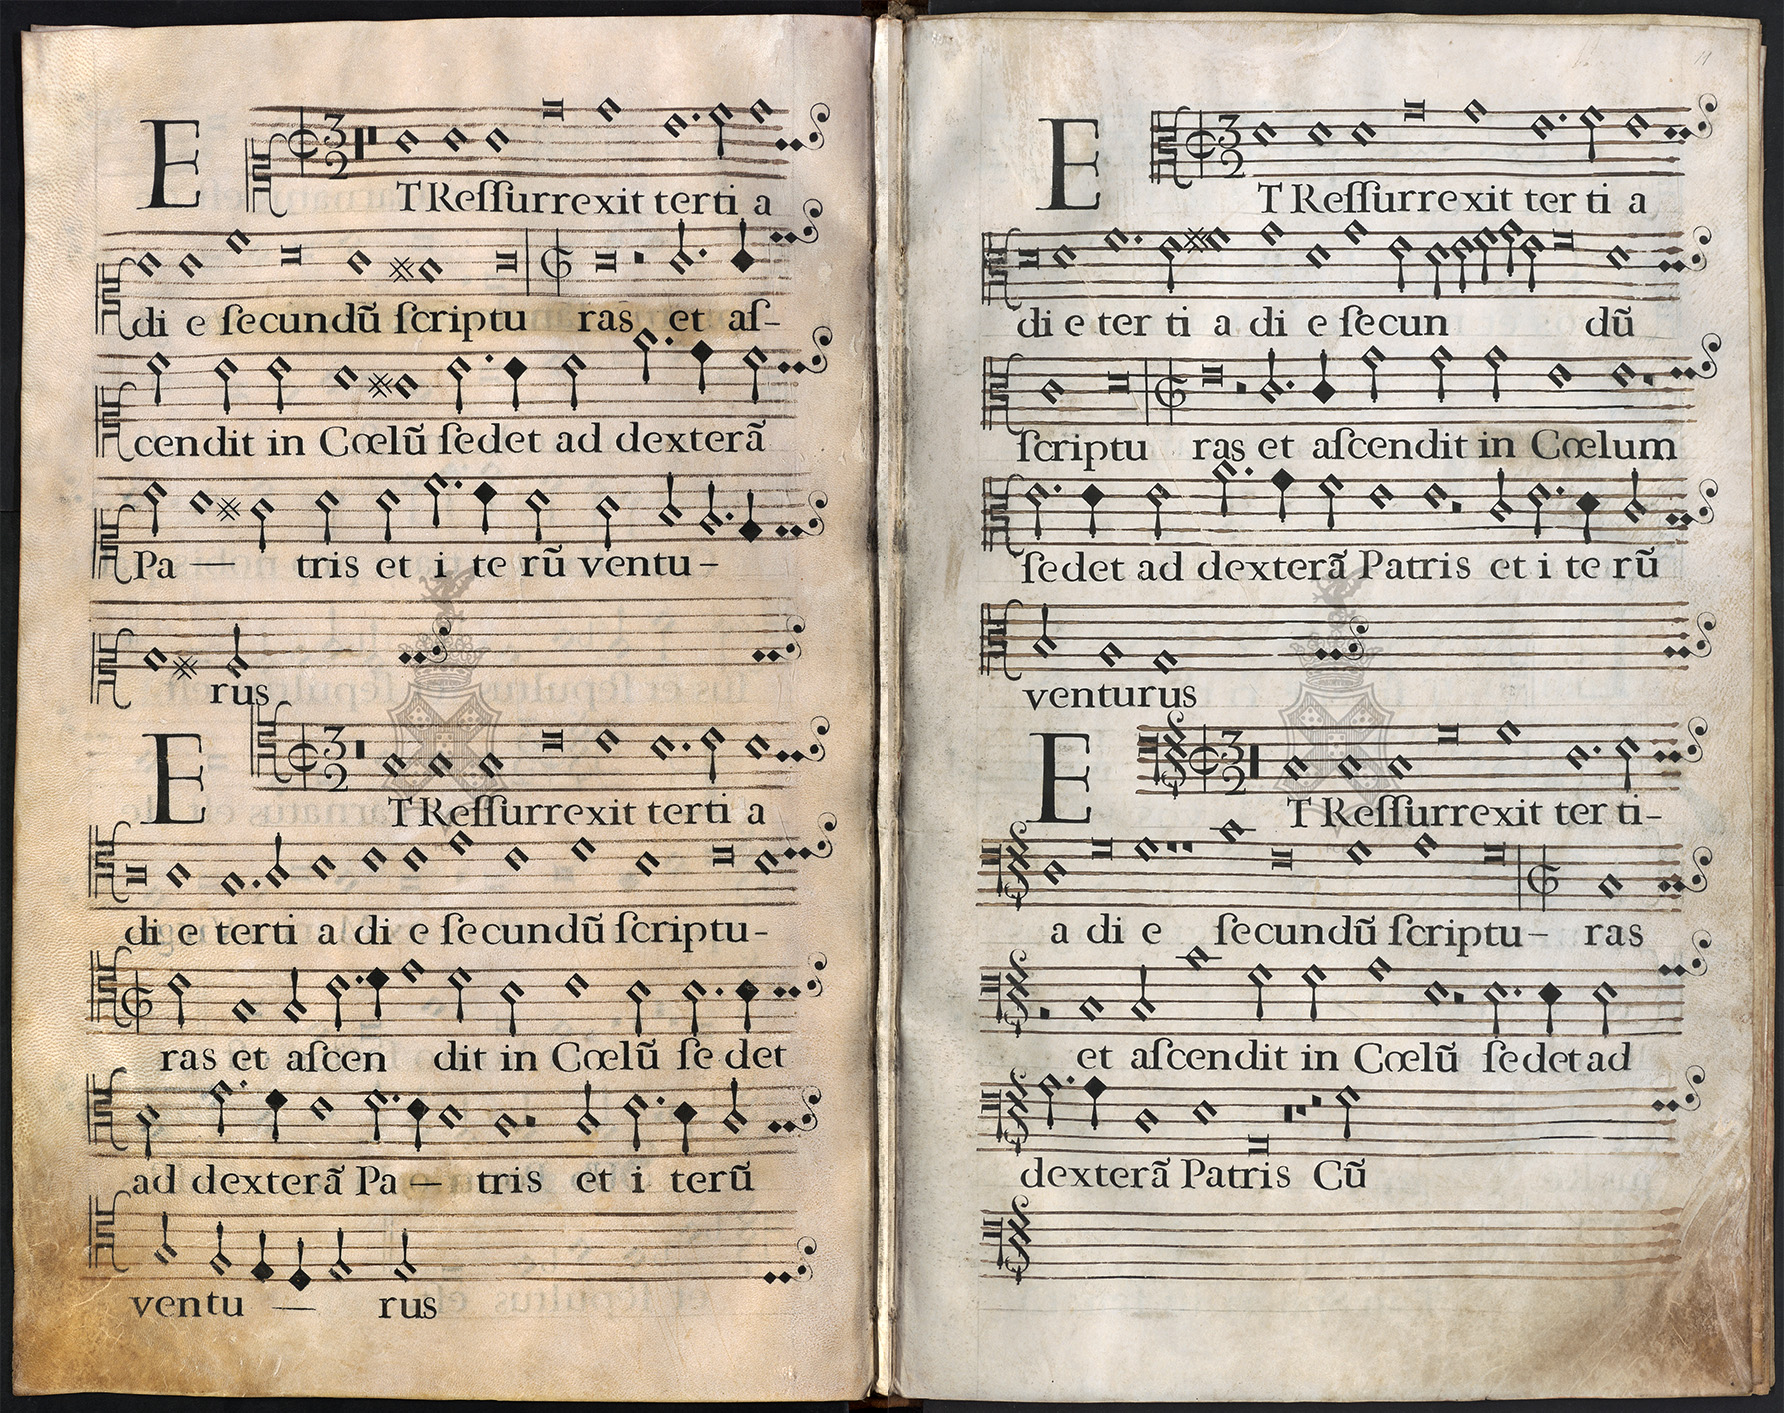 ET Reſſurrexit terti a
di e ſecundũ ſcriptu ras et aſ-
cendit in Cœlũ ſedet ad dexterã
Pa — tris et i te rũ ventu -
rus
ET Reſſurrexit terti a
di e terti a di e ſecundũ ſcriptu-
ras et aſcen dit in Cœlũ ſe det
ad dexterã Pa — tris et i terũ
ventu — rus
ET Reſſurrexit ter ti a
di e ter ti a di e ſecun dũ
ſcriptu ras et aſcendit in Cœlum
ſedet ad dexterã Patris et i te rũ
venturus
ET Reſſurrexit ter ti-
a di e ſecundũ ſcriptu- ras
et aſcendit in Cœlũ ſedet ad
dexterã Patris Cũ